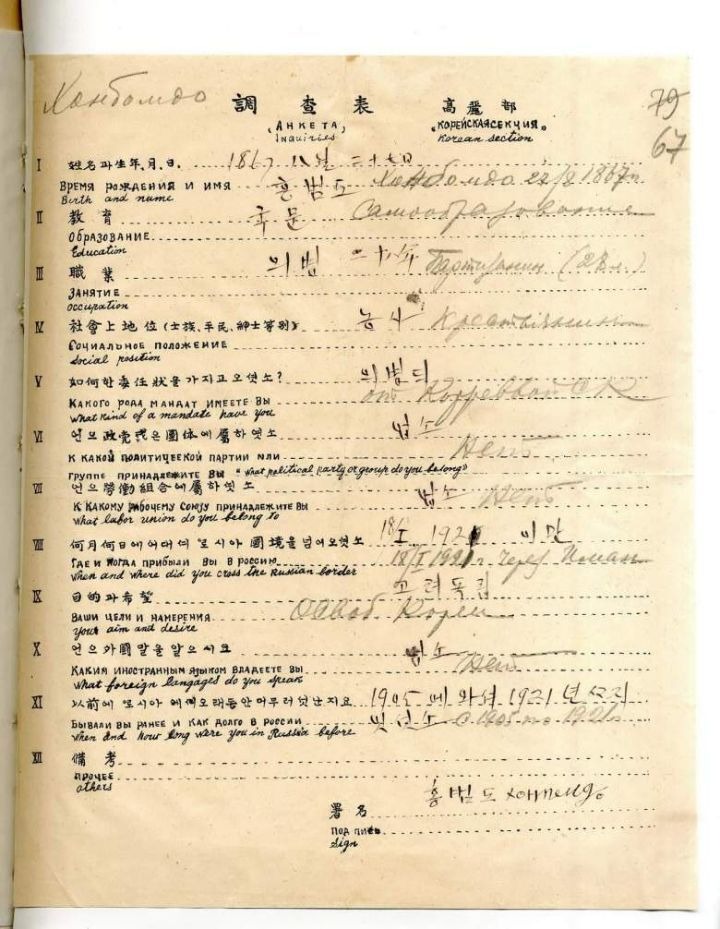 Хонбомдо
調査表 高麗部 79
„АНКЕТА„ „КОРЕЙСКАЯ СЕКЦИЯ„ 67
Inquiries Korean section
I 姓名과生年,月,日. 1867 八월 二十七日
ВРЕМЯ РОЖДЕНИЯ И ИМЯ 홍범도 Хонбомдо 27/8 1867г
Birth and name
II 教育 국문 Самообразование
ОБРАЗОВАНИЕ
Education
III 職業 의병 Партизанин
ЗАНЯТИЕ
occupation
IV 社會上地位(士族、平民、紳士等別) 농사
СОЦИАЛЬНОЕ ПОЛОЖЕНИЕ
social position
V 如何한委任狀을가지고오엿소?
КАКОГО РОДА МАНДАТ ИМЕЕТЕ ВЫ от
what kind of a mandate have you
VI 언으政党或은團体에屬하엿소 업소
К КАКОЙ ПОЛИТИЧЕСКОЙ ПАРТИИ ИЛИ Нет
ГРУППЕ ПРИНАДЛЕЖИТЕ ВЫ "what political party or group do you belong"
VII 언으勞働組合에屬하엿소 업소 Нет
К КАКОМУ РАБОЧЕМУ СОЮЗУ ПРИНАДЛЕЖИТЕ ВЫ
what labor union do you belong to
VIII 何月何日에어대셔로시아國境을넘어오엿소 1921 이만
ГДЕ И КОГДА ПРИБЫЛИ ВЫ В РОССИЮ 18/I 1921 г через Иман
when and where did you cross the Russian border
IX 目的과希望 고려독립
ВАШИ ЦЕЛИ И НАМЕРЕНИЯ Освоб. Кореи
your aim and desire
X 언으外國말을알으시오 업소
КАКИЯ ИНОСТРАННЫМ ЯЗЫКОМ ВЛАДЕЕТЕ ВЫ Нет
what foreign langages do you speak
XI 以前에로시아에예오래동안머무러섯난지요 1905에와셔 1921년
БЫВАЛИ ВЫ РАНЕЕ И КАК ДОЛГО В РОССИИ с 1905 по 1921г
when and how long were you in Russia before
XII 備考
ПРОЧЕЕ
others
署名 홍범도
ПОДПИСЬ
Sign